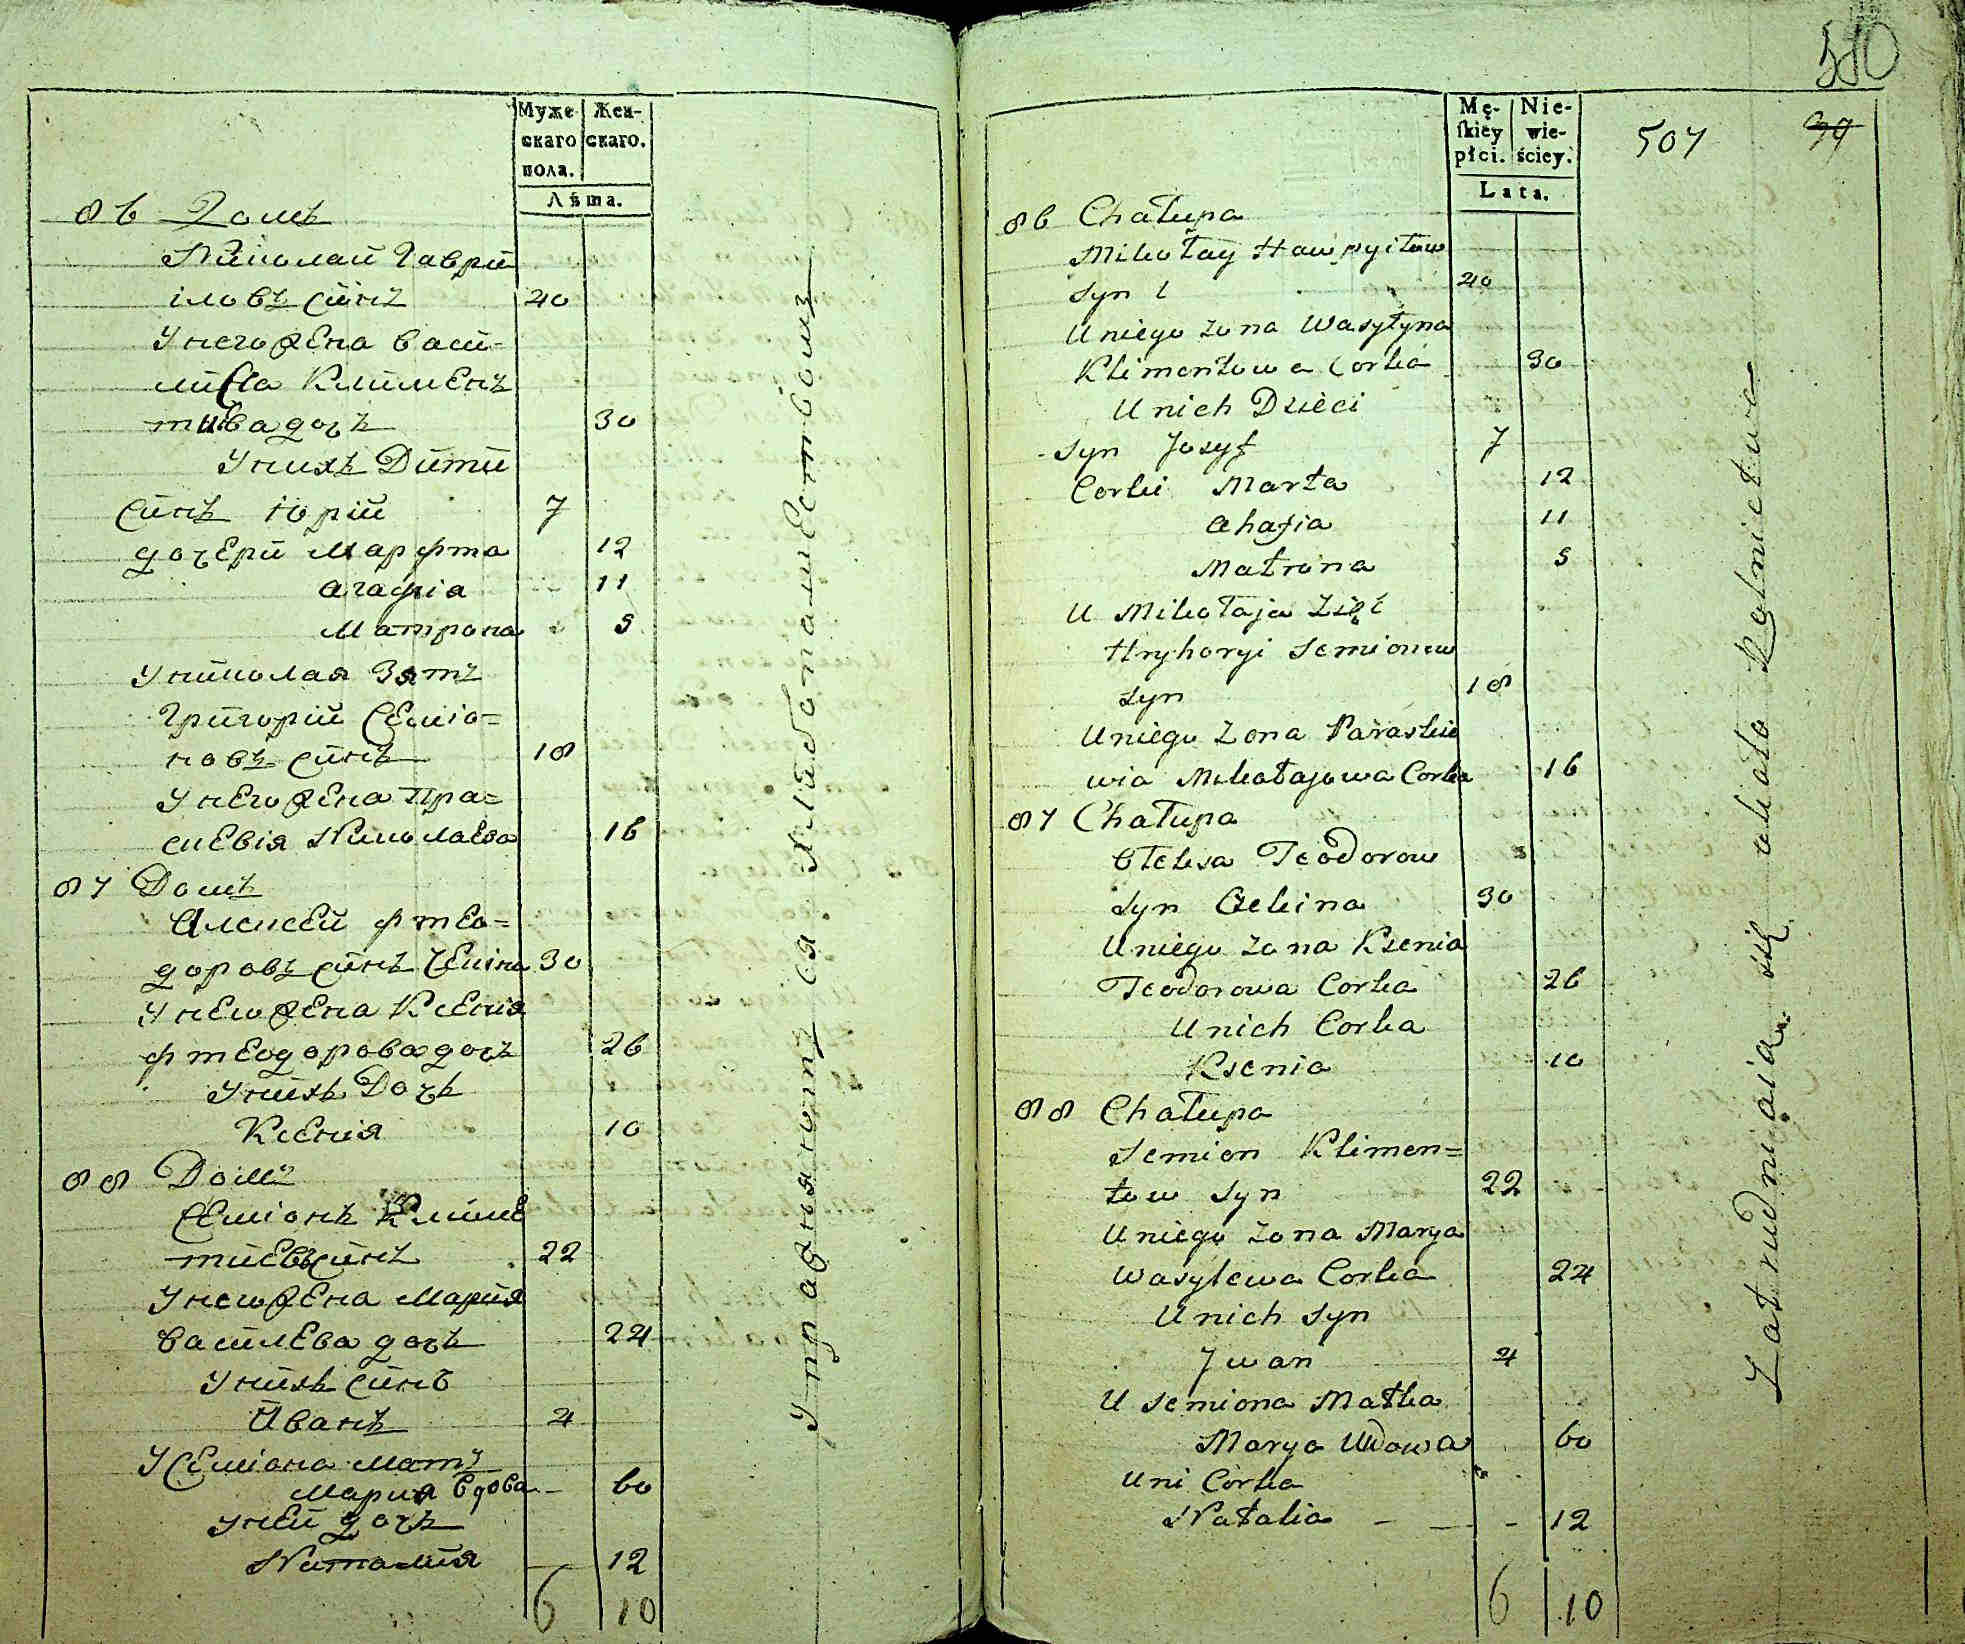 Муже-
скаго
пола.
Жен-
скаго.
Лѣта.
86 Домъ
Николай Гаврй
іловъ сйнъ 40
Унего жена васй-
лйса Клйменъ
това дочъ 30
Унихъ Дити
Сйнъ юрій 7
дочерй Марфта 12
Агафіа 11
Матрона 5
Унйколая Зять
Грйгорій Семіо=
новъ сйнъ 18
Унего жена Пра=
скевія Николаева 16
87 Домъ
Алексей Фтео=
доровъ сйнъ 30
Унего жена Ксения
фтеодорова дочъ 26
Унйхъ Дочъ
Ксения 10
88 Домъ
Семіонъ Климе
тиевъ сйнъ 22
Унего жена Мария
васйлева дочъ 24
Унйхъ сйнъ
Йванъ 4
У Семіона мать
Мария вдова 60
Уней дочъ
Наталия 12
6 10
Упражняютъ ся хлиболашествомъ
510
Mę-
skiey
płci.
Nie-
wie-
ściey.
507
39
Lata.
86 Chałupa
Mikołay Hawryiłow
Syn 40
Uniego żona Wasyłyna
Klimentowa Corka 30
Unich Dzieci
Syn Josyf 7
Corki Marta 12
Ahafia 11
Matrona 5
U Mikołaja Zięć
Hryhoryi Semionow
Syn 18
Uniego Zona Paraskie
wia Mikołajowa Corka 16
87 Chałupa
Ołeksa Teodorow
Syn 30
Uniego zona Ksenia
Teodorowa Corka 26
Unich Corka
Ksenia 10
88 Chałupa
Semion Klimen=
tow Syn 22
Uniego zona Marya
Wasylewa Corka 24
Unich Syn
Jwan 4
U Semiona Matka
Marya Wdowa 60
Uni Corka
Natalia 12
6 10
Zatrudniaią się około Rolnictwa